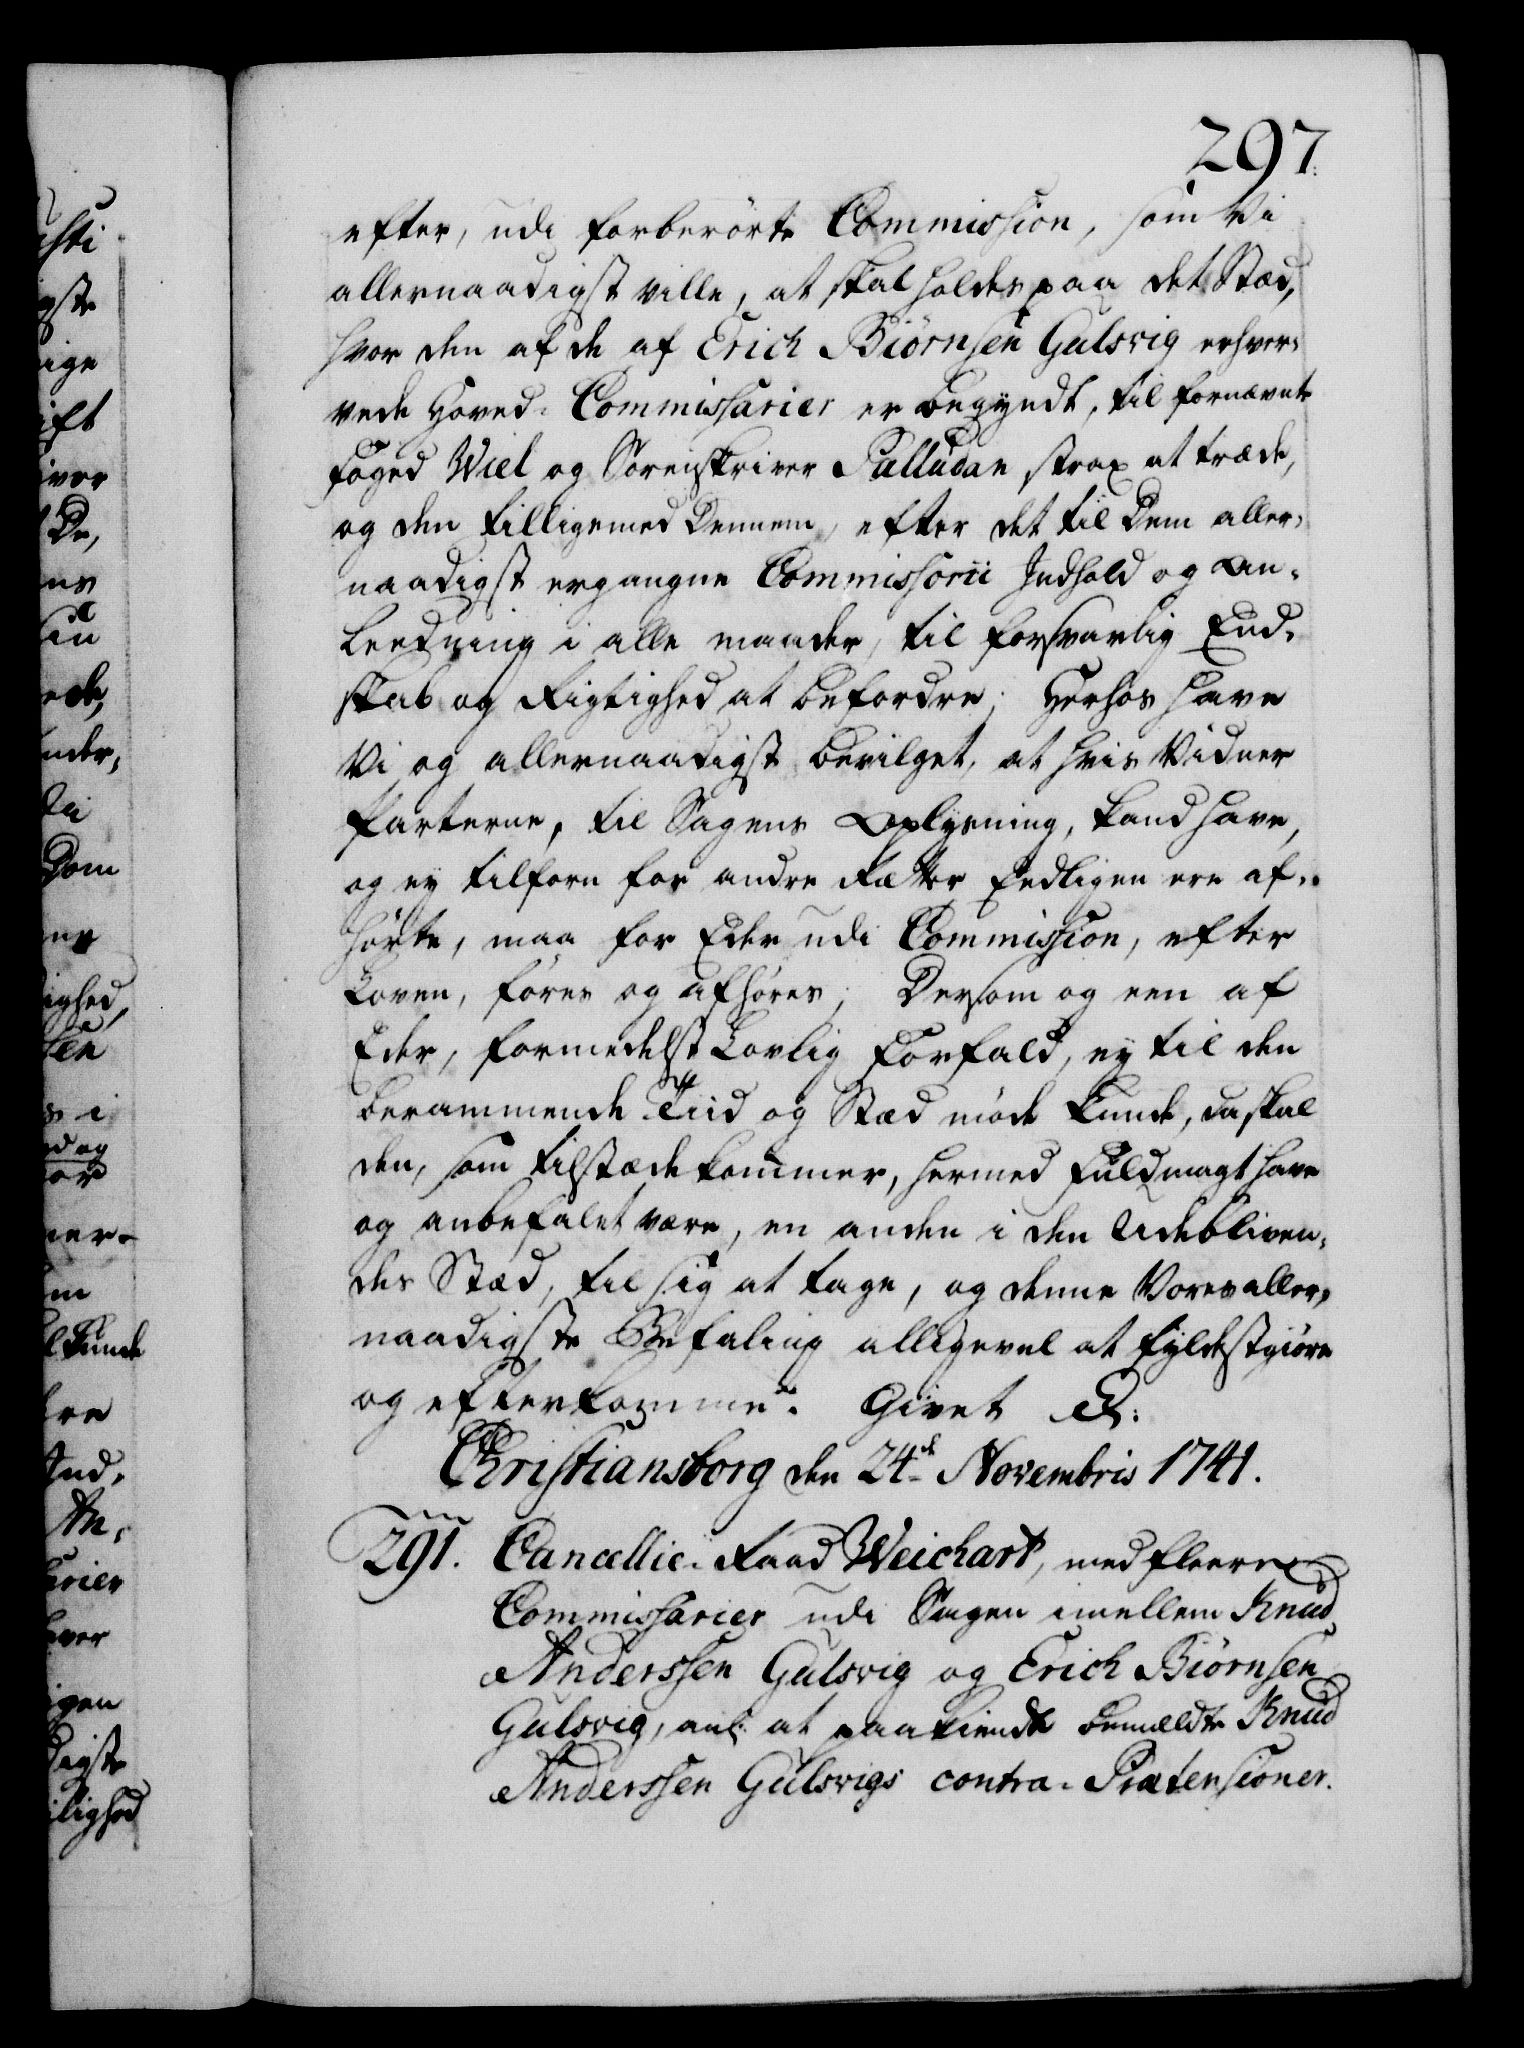 297.
efter, udi forberörte Commission, som Vi
allernaadigst ville, at skal holdes paa det Stæd,
hvor den af de af Erich Biörnsen Gulsvig erhver-
vede Hoved-Commissarier er begyndt, til fornævnte
Foged Wiel og Sorenskriver Palludan strax at træde,
og den tilligemed Dennem, efter det til Dem aller-
naadigst ergangne Commissorii Indhold og An-
leedning i alle maader, til forsvarlig End-
skab og Rigtighed at befordre; Herhos have
Vi og allernaadigst bevilget, at hvis Vidner
Parterne, til Sagens Oplysning, kand have,
og ey tilforn for andre Rætter Eedligen ere af-
hörte, maa for Eder udi Commission, efter
Loven, föres og afhöres; Dersom og een af
Eder, formedelst Lovlig Forfald, ey til den
berammende Tiid og Stæd möde kunde, da skal
den, som tilstæde kommer, hermed Fuldmagt have
og anbefalet være, en anden i den Udebliven-
des Stæd, til sig at tage, og denne Vores aller-
naadigste Befaling alligevel at fyldestgiöre
og efterkomme. Givet &c:
Christiansborg den 24de Novembris 1741.
291. Cancellie-Raad Weichart, med fleere
Commissarier udi Sagen imellem Knud
Anderssen Gulsvig og Erich Biörnsen
Gulsvig, anl: at paakiende bemeldte Knud
Anderssen Gulsvigs contra-Prætensioner.